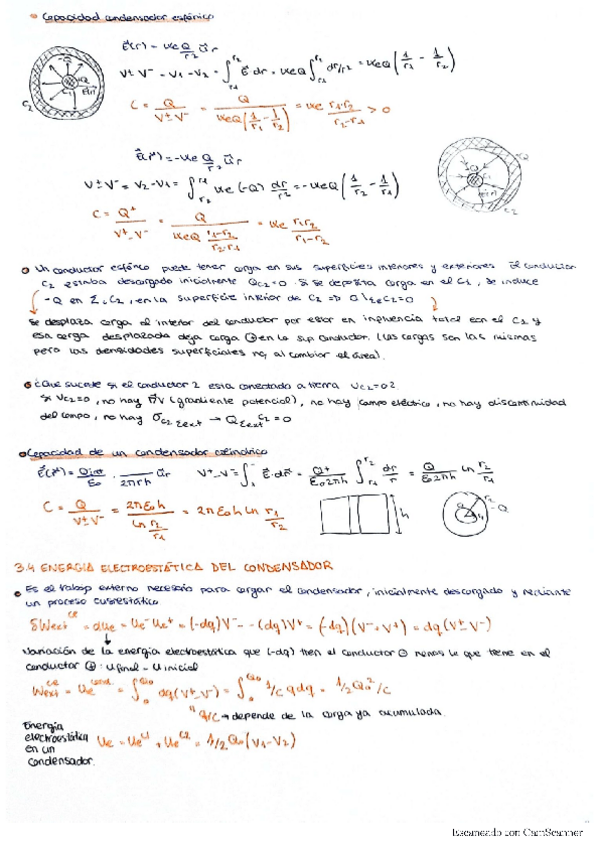 Capacidad condensador esférico
E(r) = Ke Q/r² ûr
V+-V- = V1-V2 = ∫r1^r2 E dr = KeQ ∫r1^r2 dr/r² = KeQ (1/r1 - 1/r2)
C = Q/(V+-V-) = Q/(KeQ(1/r1 - 1/r2)) = Ke r1·r2/(r2-r1) > 0
E(r) = -Ke Q/r² ûr
V+-V- = V2-V1 = ∫r2^r1 Ke(-Q) dr/r² = -KeQ (1/r2 - 1/r1)
C = Q+/(V+-V-) = Q/(KeQ (r1-r2)/(r2·r1)) = Ke r1r2/(r1-r2)
Un conductor esférico puede tener carga en sus superficies interiores y exteriores. El conductor
C2 estaba descargado inicialmente QC2=0. Si se deposita carga en el C1, se induce
-Q en Σi C2, en la superficie interior de C2 =>
Se desplaza carga al interior del conductor por estar en influencia total con el C1 y
esa carga desplazada deja carga ⊕ en la sup conductor. (las cargas son las mismas
pero las densidades superficiales no, al cambiar el área).
¿Que sucede si el conductor 2 esta conectado a tierra VC2=0?
Si VC2=0, no hay ∇V (gradiente potencial), no hay campo eléctrico, no hay discontinuidad
del campo, no hay σC2 Σext → QΣext C2 = 0
Capacidad de un condensador cilíndrico
E(r) = Qint/ε0 · 1/2πrh ûr V+-V- = ∫ E·dr = Q+/(ε0 2πh) ∫r1^r2 dr/r = Q/(ε0 2πh) ln r2/r1
C = Q/(V+-V-) = 2πε0h/(ln r2/r1) = 2πε0h ln r1/r2
3.4 ENERGIA ELECTROESTÁTICA DEL CONDENSADOR
Es el trabajo externo necesario para cargar el condensador, inicialmente descargado y mediante
un proceso cuasiestático
δWext = dUe = Ue- Ue+ = (-dq)V- - (dq)V+ = (-dq)(V- - V+) = dq(V+-V-)
Variación de la energia electroestática que (-dq) tien el conductor ⊖ menos la que tiene en el
conductor ⊕ : U final - U inicial
Wext = Ue cond. = ∫0^Q0 dq(V+-V-) = ∫0^Q0 1/C q dq = 1/2 Q0²/C
q/C → depende de la carga ya acumulada.
Energía
electroestática
en un
condensador.
Ue = Ue C1 + Ue C2 = 1/2 Q0(V1-V2)
Escaneado con CamScanner